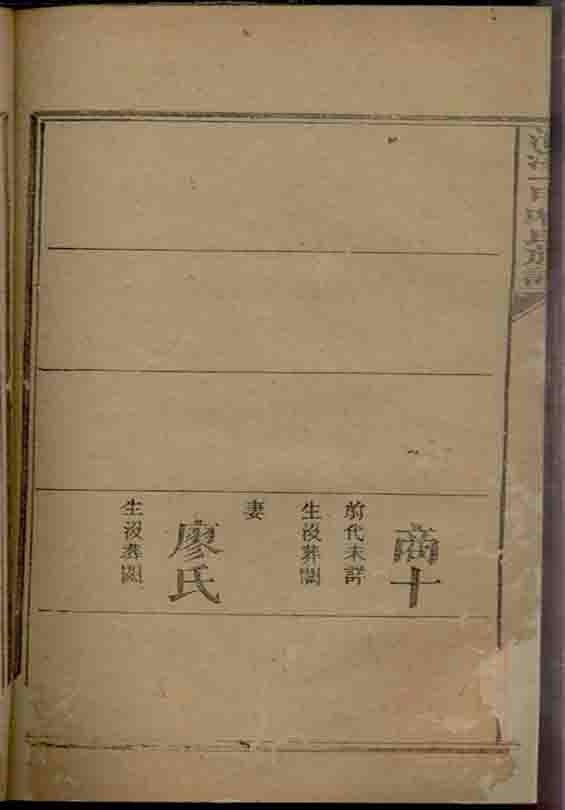 商十
前代未詳
生沒葬闕
妻
廖氏
生沒葬闕